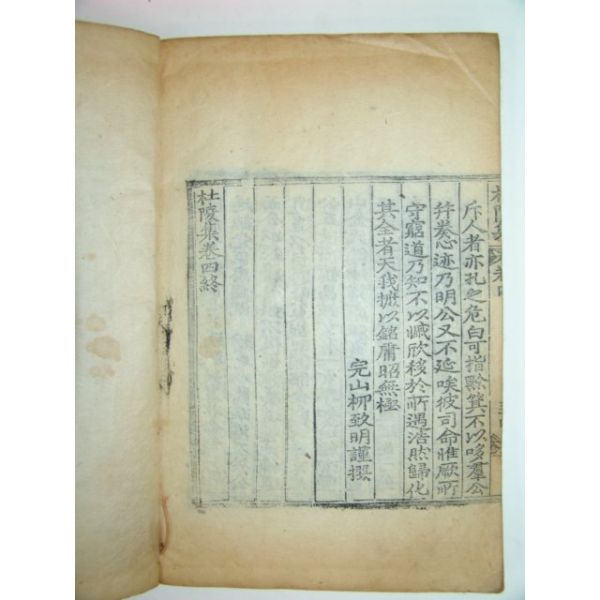 杜陵集 卷四
斥人者亦孔之危白可指黥箕不以哆羣公
幷羙心迹乃明公又不延唉彼司命惟厥所
守窮道乃知不以慽欣移於所遇浩然歸化
其全者天我摭以銘庸昭無極
完山柳致明謹撰
杜陵集卷四終